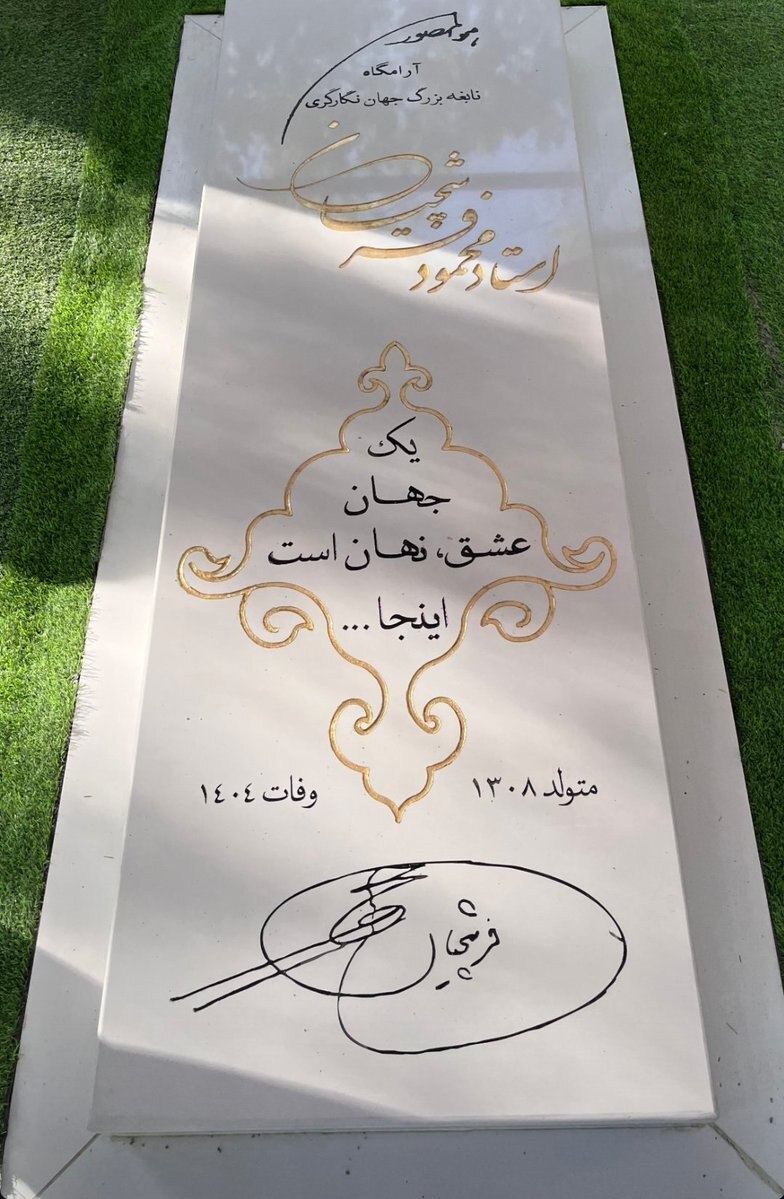 هوالمصور
آرامگاه
نابغه بزرگ جهان نگارگری
استاد محمود فرشچیان
یک
جهان
عشق، نهان است
اینجا...
متولد ۱۳۰۸ وفات ۱۴۰۴
فرشچیان